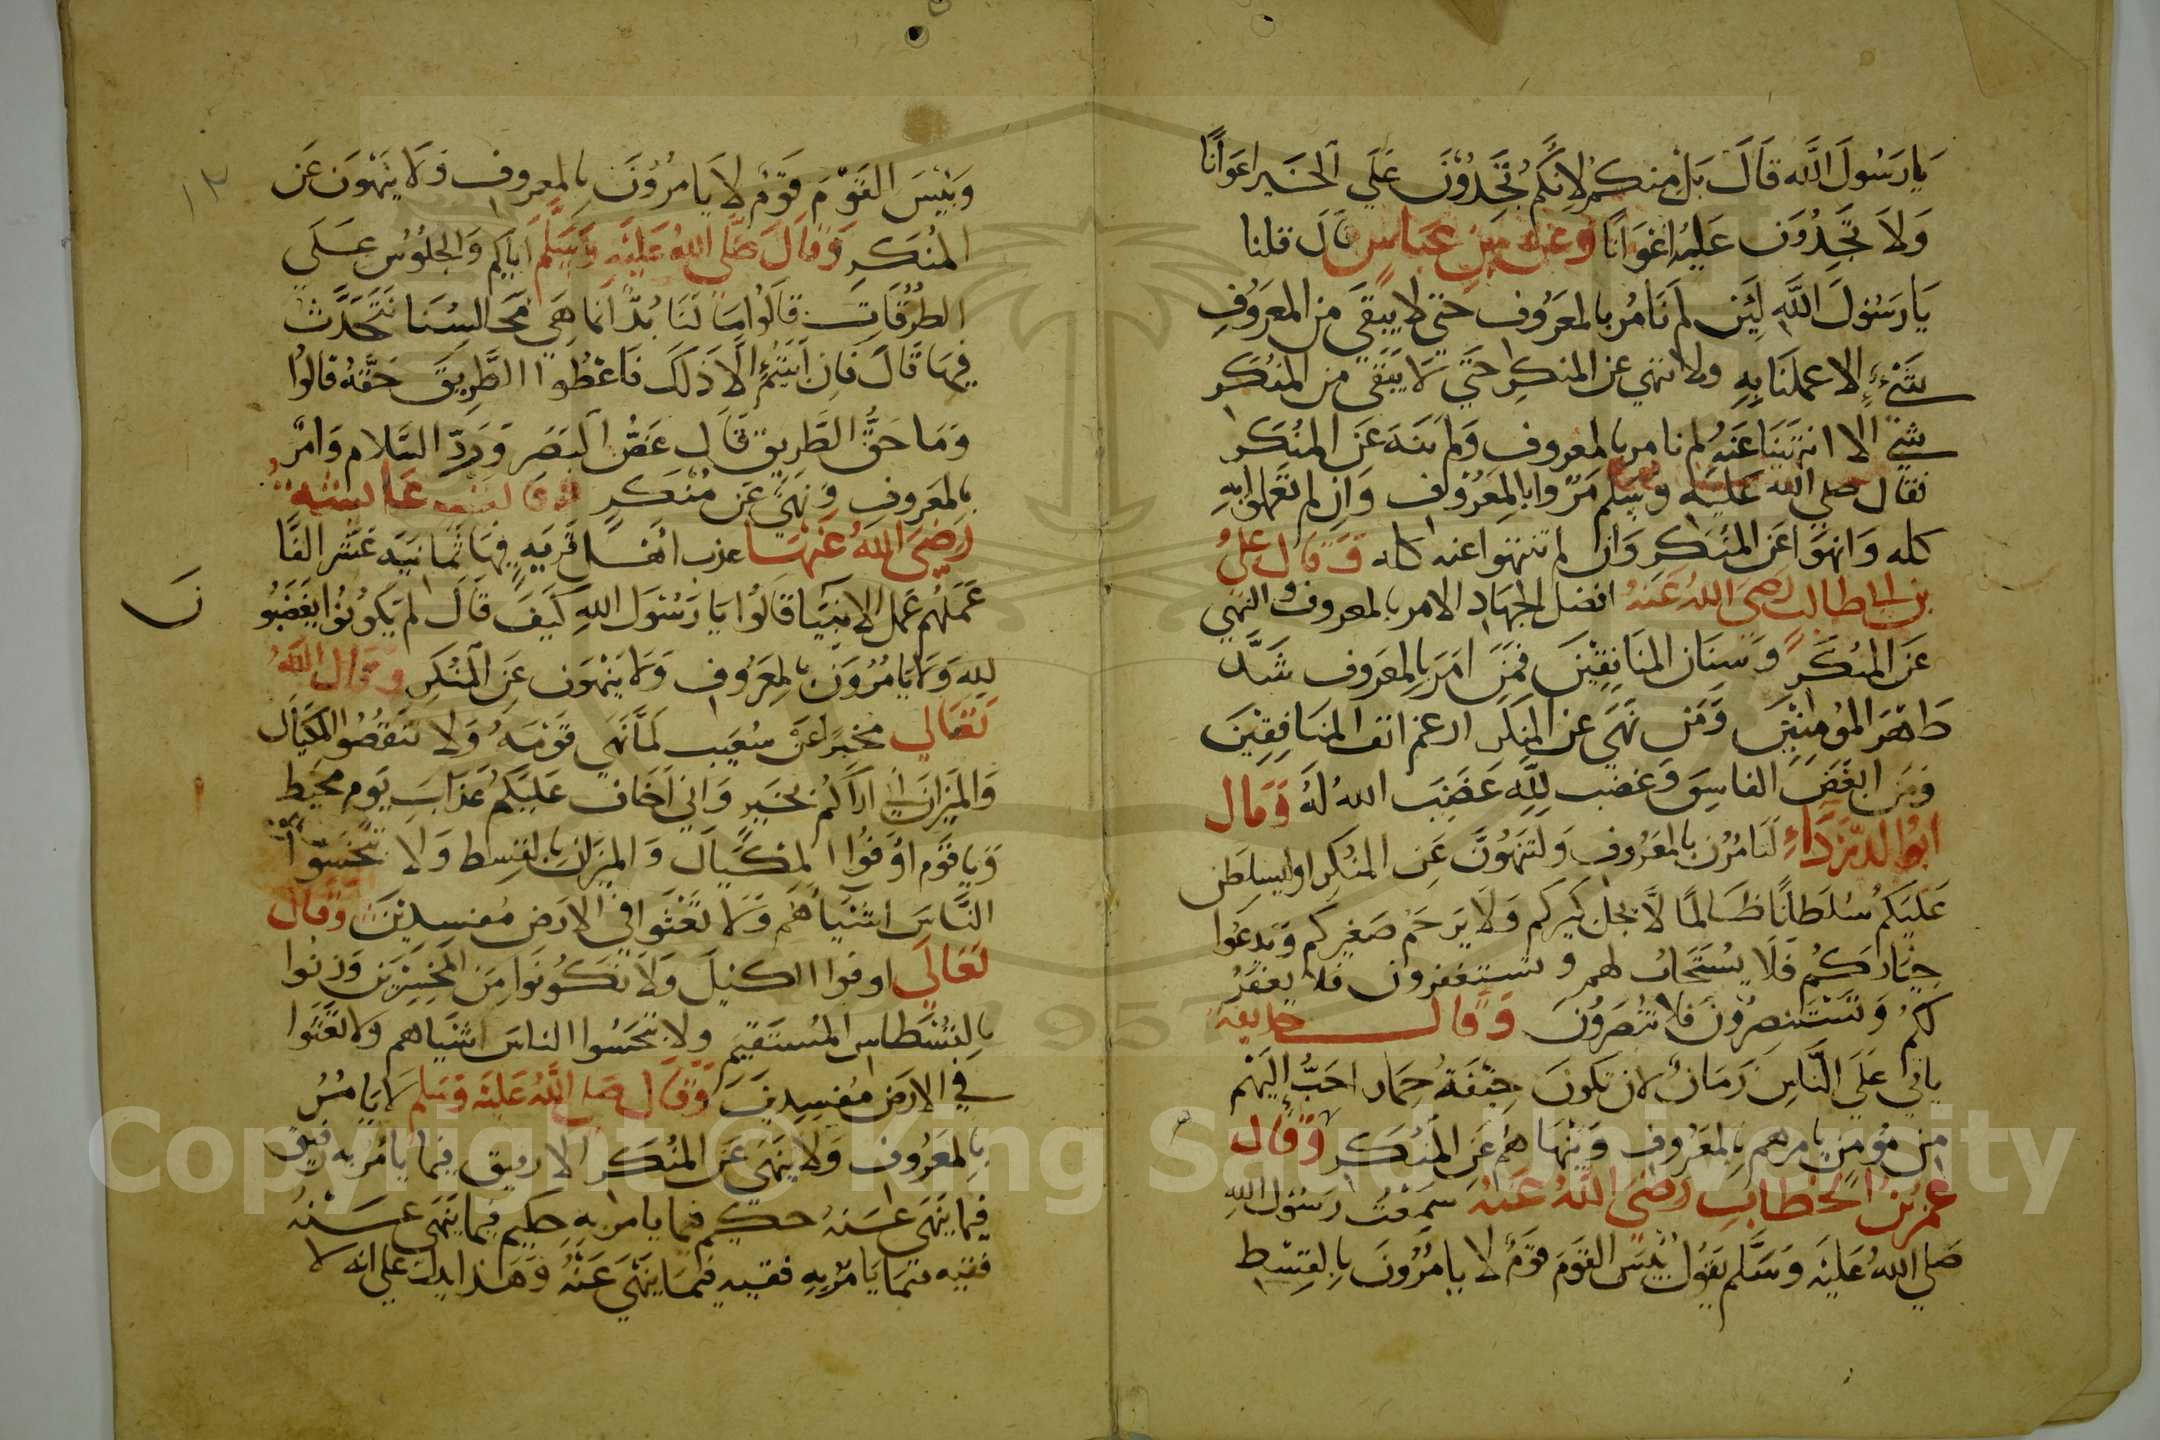 يا رسول الله قال بل منكم لانكم تجدون علي الخير اعوانا
ولا تجدون عليه اعوانا وعن بن عباس قال قلنا
يا رسول الله لئن لم نامر بالمعروف حتي لا يبقي من المعروف
شيء الا عملنا به ولا ننهي عن المنكر حتي لا يبقي من المنكر
شيئ الا انتهينا عنه لم نامر بالمعروف ولم ننه عن المنكر
فقال صلي الله عليه وسلم مروا بالمعروف وان لم تعملوا به
كله وانهوا عن المنكر وان لم تنتهوا عنه كله وقال علي
بن ابي طالب رضي الله عنه افضل الجهاد الامر بالمعروف والنهي
عن المنكر وسنان المنافقين فمن امر بالمعروف شد
ظهر المومنين ومن نهي عن المنكر ارغم انف المنافقين
ومن ابغض الفاسق وغضب لله غضب الله له وقال
ابو الدرداء لتامرن بالمعروف ولتنهون عن المنكر او ليسلطن
عليكم سلطانا ظالما لا يجل كبيركم ولا يرحم صغيركم ويدعوا
خياركم فلا يستجاب لهم وتستغفرون فلا يغفر
لكم وتستنصرون فلا تنصرون وقال حذيفة
ياتي علي الناس زمان لان تكون جيفة حمار احب اليهم
من مومن يامرهم بالمعروف وينهاهم عن المنكر وقال
عمر بن الخطاب رضي الله عنه سمعت رسول الله
صلي الله عليه وسلم يقول بئس القوم قوم لا يامرون بالقسط
١٢
وبئس القوم قوم لا يامرون بالمعروف ولا ينهون عن
المنكر وقال صلي الله عليه وسلم اياكم والجلوس علي
الطرقات قالوا ما لنا بد انما هي مجالسنا نتحدث
فيها قال فان ابيتم الا ذلك فاعطوا الطريق حقه قالوا
وما حق الطريق قال غض البصر ورد السلام وامر
بالمعروف ونهي عن منكر وقالت عائشة
رضي الله عنها عذب اهل قرية فيها ثمانية عشر الفا
عملهم عمل الانبيا قالوا يا رسول الله كيف قال لم يكونوا يغضبو
لله ولا يامرون بالمعروف ولا ينهون عن المنكر وقال الله
تعالي مخبرا عن شعيب لما نهي قومه ولا تنقصوا المكيال
والميزان اني اراكم بخير واني اخاف عليكم عذاب يوم محيط
ويا قوم اوفوا المكيال والميزان بالقسط ولا تبخسوا
الناس اشياهم ولا تعثوا في الارض مفسدين وقال
تعالي اوفوا الكيل ولا تكونوا من المخسرين وزنوا
بالقسطاس المستقيم ولا تبخسوا الناس اشياهم ولا تعثوا
في الارض مفسدين وقال صلي الله عليه وسلم لا يامر
بالمعروف ولا ينهي عن المنكر الا رفيق فيما يامر به رفيق
فيما ينهي عنه حكيم فيما يامر به حكيم فيما ينهي عنه
فقيه فيما يامر به فقيه فيما ينهي عنه وهذا يدل علي انه لا
Copyright © King Saud University
1957